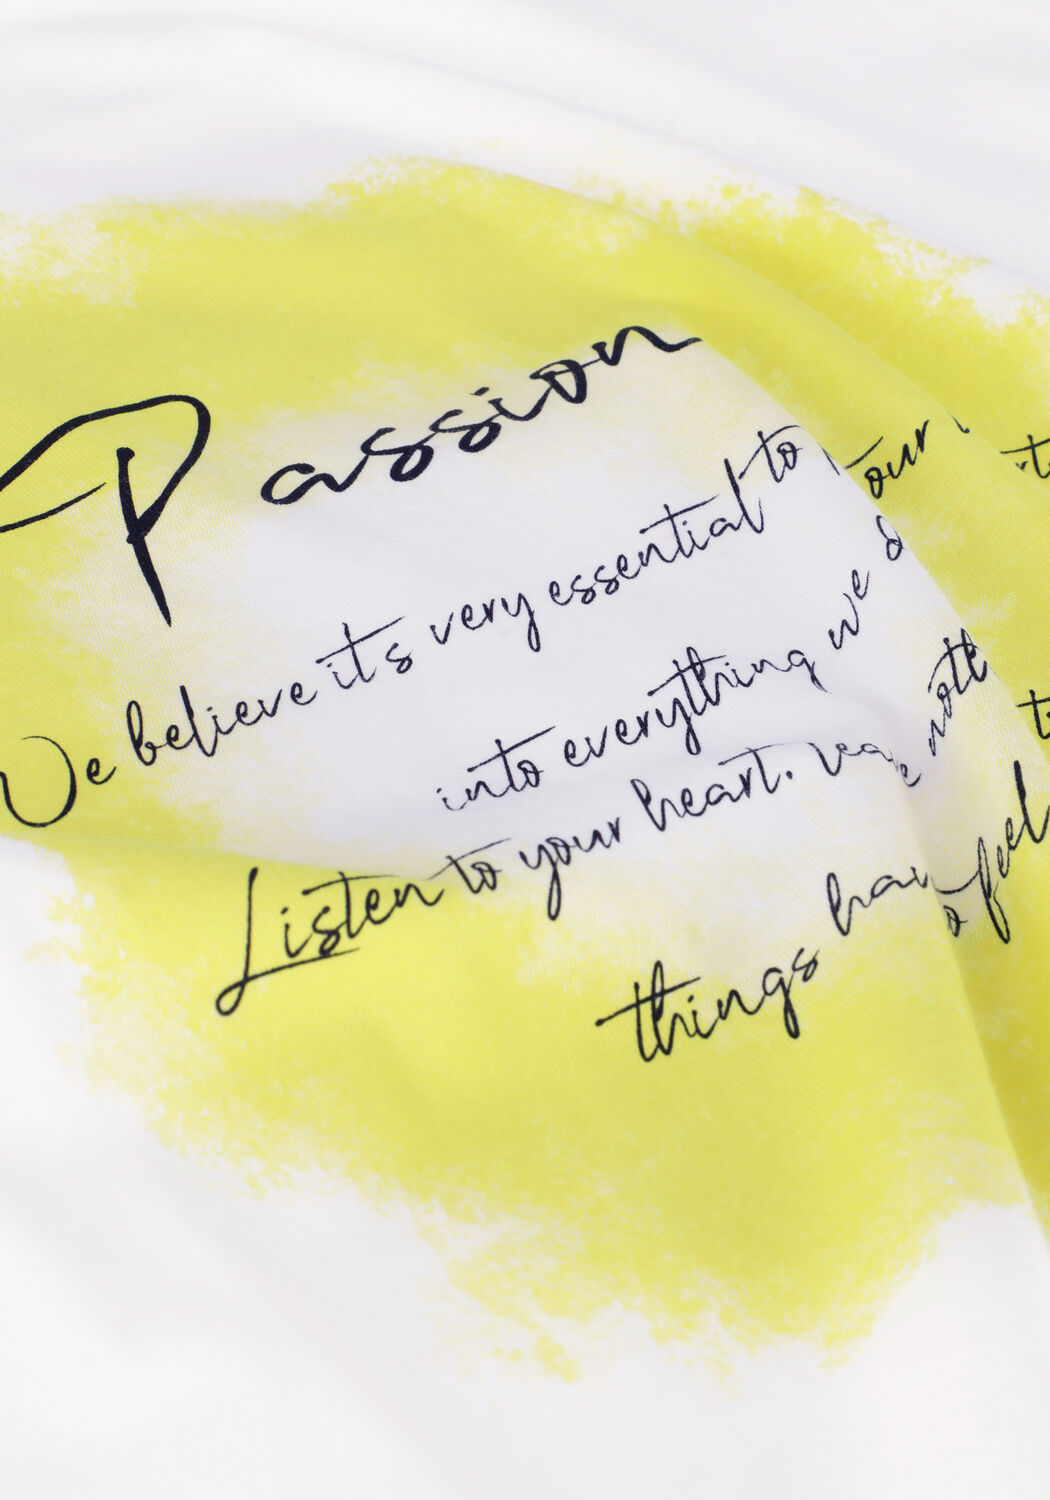 Passion
We believe it's very essential to
into everything we
Listen to your heart.
things
feel